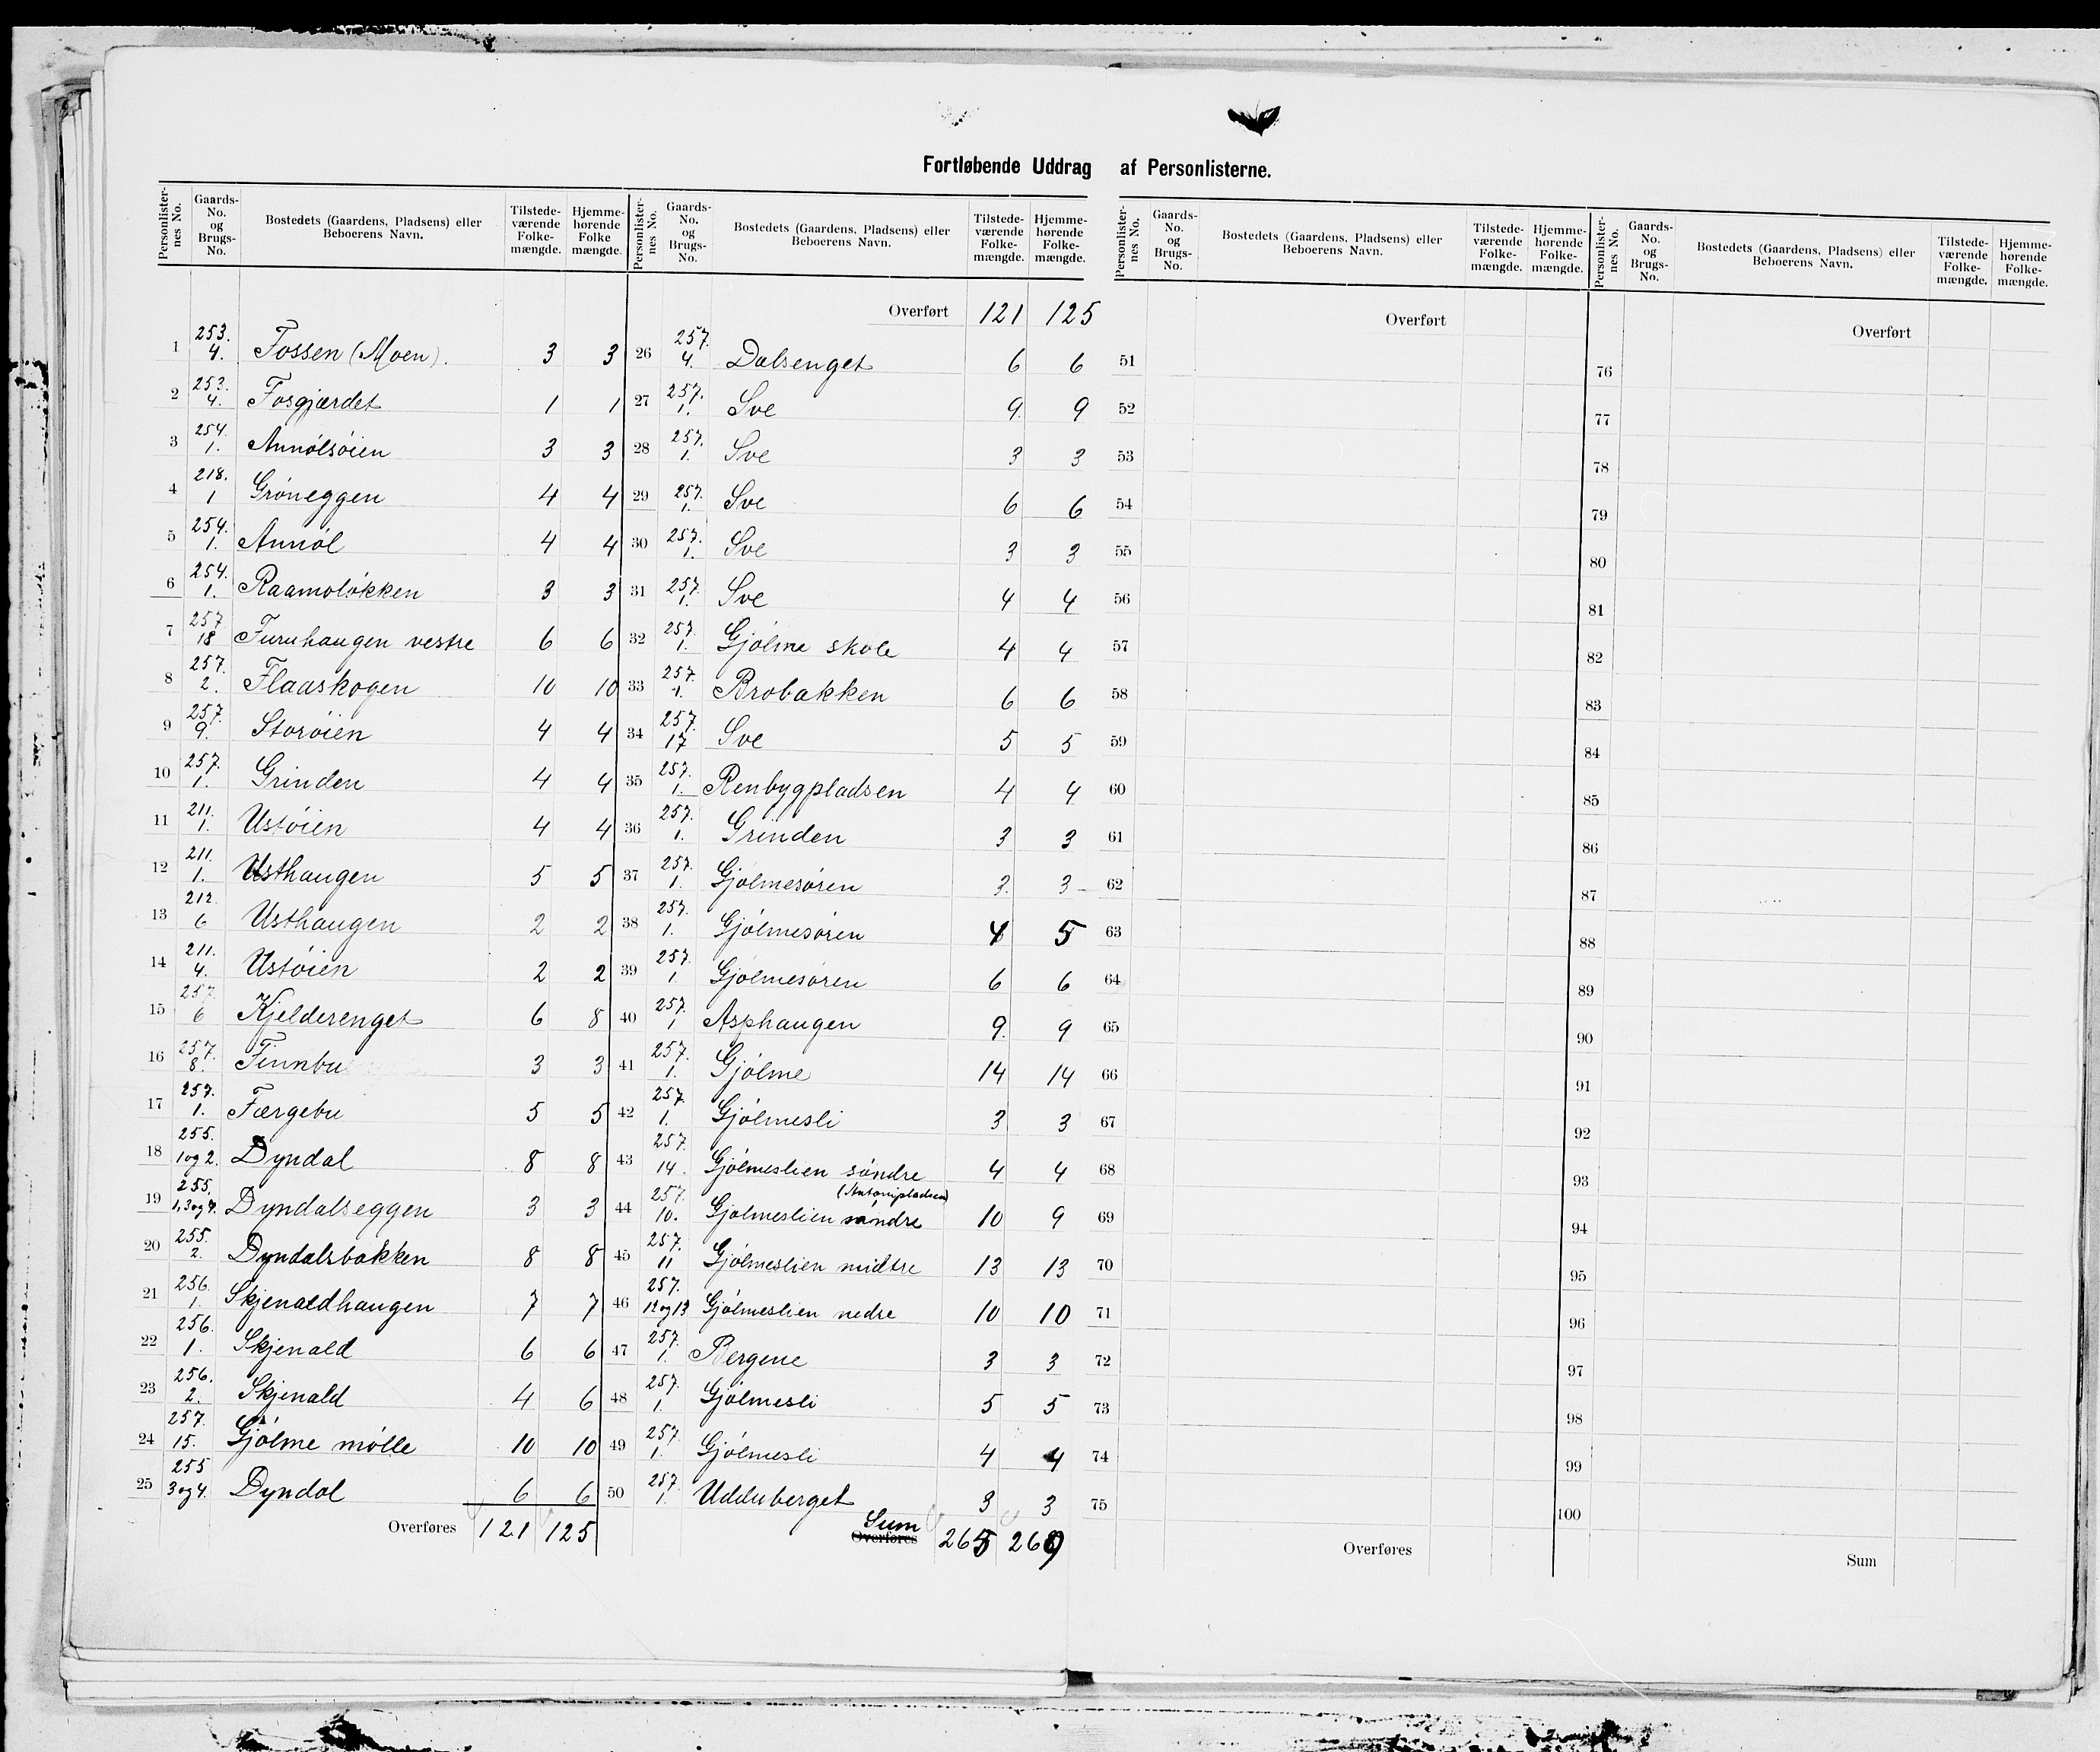 Fortløbende Uddrag af Personlisterne.
Personlisternes No. | Gaards-No. og Brugs-No. | Bostedets (Gaardens, Pladsens) eller Beboerens Navn. | Tilstedeværende Folkemængde. | Hjemmehørende Folkemængde.
1 | 253. 4. | Fossen (Moen). | 3 | 3
2 | 253. 4. | Fosgjærdet | 1 | 1
3 | 254. 1. | Annølsøien | 3 | 3
4 | 218. 1 | Grøneggen | 4 | 4
5 | 254. 1. | Annøl | 4 | 4
6 | 254. 1. | Raamoløkken | 3 | 3
7 | 257 18 | Furuhaugen vestre | 6 | 6
8 | 257. 2. | Flaaskogen | 10 | 10
9 | 257. 9. | Storøien | 4 | 4
10 | 257. 1. | Grinden | 4 | 4
11 | 211. 1. | Ustøien | 4 | 4
12 | 211. 1. | Usthaugen | 5 | 5
13 | 212. 6 | Usthaugen | 2 | 2
14 | 211. 4. | Ustøien | 2 | 2
15 | 257. 6 | Kjelderenget | 6 | 8
16 | 257. 8. | Finnbu | 3 | 3
17 | 257. 1. | Færgebu | 5 | 5
18 | 255. 1 og 2. | Dyndal | 8 | 8
19 | 255. 1, 3 og 4. | Dyndalseggen | 3 | 3
20 | 255. 2. | Dyndalsbakken | 8 | 8
21 | 256. 1. | Skjenaldhaugen | 7 | 7
22 | 256. 1. | Skjenald | 6 | 6
23 | 256. 2. | Skjenald | 4 | 6
24 | 257. 15. | Gjølme mølle | 10 | 10
25 | 255 3 og 4. | Dyndal | 6 | 6
Overføres 121 125
Personlisternes No. | Gaards-No. og Brugs-No. | Bostedets (Gaardens, Pladsens) eller Beboerens Navn. | Tilstedeværende Folkemængde. | Hjemmehørende Folkemængde.
Overført 121 125
26 | 257. 4. | Dalsenget | 6 | 6
27 | 257. 1. | Sve | 9. | 9
28 | 257. 1. | Sve | 3 | 3
29 | 257. 1. | Sve | 6 | 6
30 | 257. 1. | Sve | 3 | 3
31 | 257. 1. | Sve | 4 | 4
32 | 257. 1. | Gjølme skole | 4 | 4
33 | 257. 1. | Brobakken | 6 | 6
34 | 257. 17 | Sve | 5 | 5
35 | 257. 1. | Renbygpladsen | 4 | 4
36 | 257. 1. | Grinden | 3 | 3
37 | 257. 1. | Gjølmesøren | 3. | 3
38 | 257. 1. | Gjølmesøren | 4 | 5
39 | 257. 1. | Gjølmesøren | 6 | 6
40 | 257. 1 | Asphaugen | 9. | 9
41 | 257. 1. | Gjølme | 14 | 14
42 | 257. 1. | Gjølmesli | 3 | 3
43 | 257. 14. | Gjølmeslien søndre | 4 | 4
44 | 257. 10. | Gjølmeslien søndre (Antonipladsen) | 10 | 9
45 | 257. 11 | Gjølmeslien midtre | 13 | 13
46 | 257. 12 og 13 | Gjølmeslien nedre | 10 | 10
47 | 257. 1. | Bergene | 3 | 3
48 | 257. 1. | Gjølmesli | 5 | 5
49 | 257. 1. | Gjølmesli | 4 | 4
50 | 257. 1. | Udduberget | 3 | 3
Sum
Overføres 265 269
Personlisternes No. | Gaards-No. og Brugs-No. | Bostedets (Gaardens, Pladsens) eller Beboerens Navn. | Tilstedeværende Folkemængde. | Hjemmehørende Folkemængde.
Overført
51
52
53
54
55
56
57
58
59
60
61
62
63
64
65
66
67
68
69
70
71
72
73
74
75
Overføres
Personlisternes No. | Gaards-No. og Brugs-No. | Bostedets (Gaardens, Pladsens) eller Beboerens Navn. | Tilstedeværende Folkemængde. | Hjemmehørende Folkemængde.
Overført
76
77
78
79
80
81
82
83
84
85
86
87
88
89
90
91
92
93
94
95
96
97
98
99
100
Sum